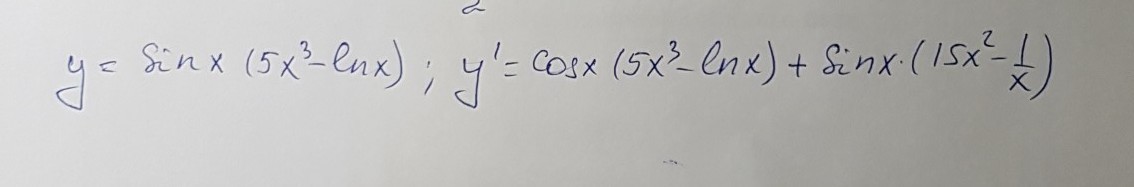 y = sin x (5x³ - ln x) ; y' = cos x (5x³ - ln x) + sin x · (15x² - 1/x)